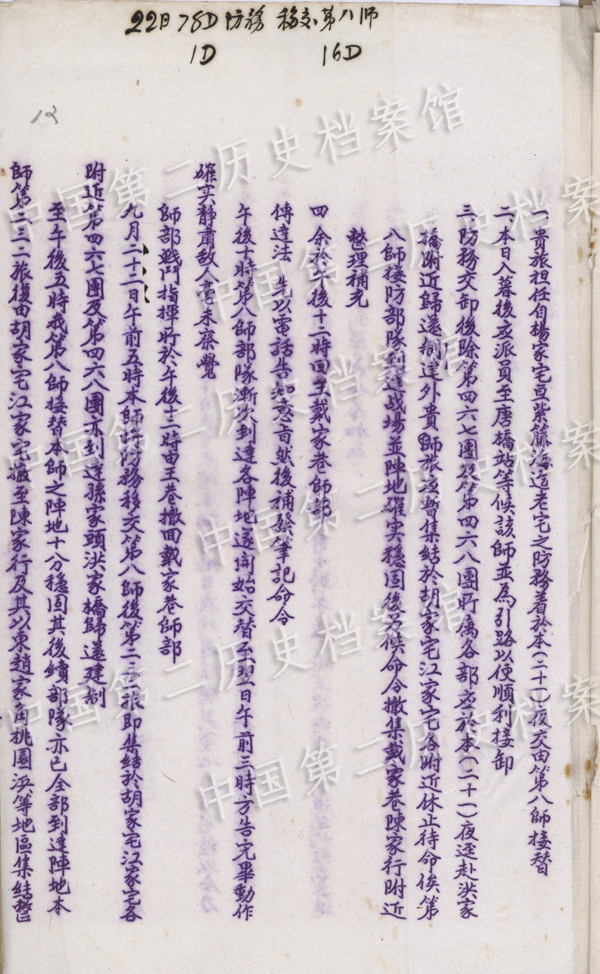 22日78D防務 移交第八师
1D
16D
13
一、貴旅担任自楊家宅亘紫藤老宅之防務着於本(二十一)夜交由第八師接替
二、本日入暮後应派員至唐橋站等候該師並為引路以便順利接卸
三、防務交卸後除第四六七團及第四六八團所属各部应於本(二十一)夜逕赴洪家
橋附近歸還建制連外貴師旅应暫集結於胡家宅江家宅各附近休止待命俟第
八師接防部隊到達战場並陣地確实穩固後另候命令撤集戴家巷陳家行附近
整理補充
四 余於午後十二時回至戴家巷師部
傳達法 先以電話告知意旨然後補發筆記命令
午後十時第八師部隊漸次到達各陣地遂開始交替至翌日午前三時方告完畢動作
確实靜肅敌人尚未察覺
師部戰鬥指揮所於午後十二時由王巷撤回戴家巷師部
九月二十二日午前五時本師防務移交第八師後第二三二旅即集結於胡家宅江家宅各
附近第四六七團及第四六八團亦到達孫家頭洪家橋歸還建制
至午後五時我第八師接替本師之陣地十分穩固其後續部隊亦已全部到達陣地本
師第二三二旅復由胡家宅江家宅撤至陳家行及其以東趙家角桃園浜等地區集結整
中国第二历史档案馆